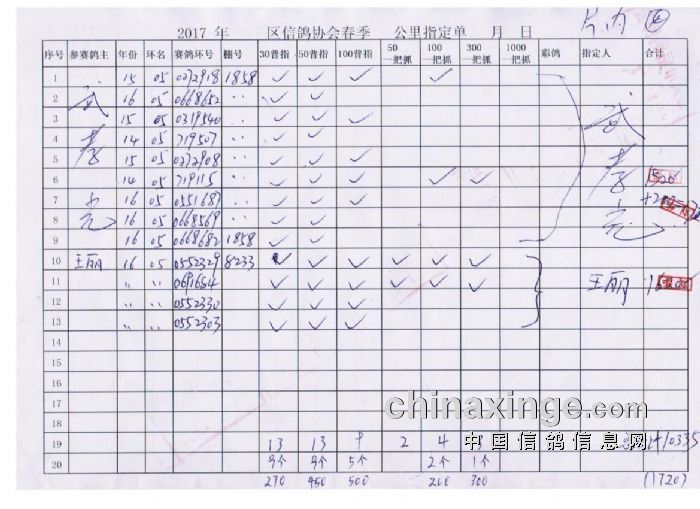 片内 ④
2017 年 区信鸽协会春季 公里指定单 月 日
序号 参赛鸽主 年份 环名 赛鸽环号 棚号 30普指 50普指 100普指 50一把抓 100一把抓 300一把抓 1000一把抓 彩鸽 指定人 合计
1 15 05 0272918 1858 ✓ ✓ ✓ ✓ ✓
2 武 16 05 0668652 〃 ✓ ✓
3 15 05 0319540 〃 ✓ ✓ ✓
4 孝 14 05 719507 〃 ✓ ✓
5 15 05 0272908 〃 ✓ ✓ ✓
6 14 05 719115 ✓ ✓ ✓ ✓ ✓
7 16 05 0551687 〃 ✓ ✓ ✓
8 16 05 0668569 ✓ ✓
9 16 05 0668682 1858 ✓ ✓
武孝
10 王丽 16 05 0552329 8233 ✓ ✓ ✓ ✓ ✓ ✓
11 〃 〃 0691654 ✓ ✓ ✓ ✓ ✓ ✓ 王丽
12 〃 〃 0552330 ✓ ✓ ✓
13 〃 〃 0552303 ✓ ✓ ✓
14
15
16
17
18
chinaxinge.com
中国信鸽信息网
19 13 13 9 2 4
20 9个 9个 5个 2个 1个
270 450 500 200 300 (1720)